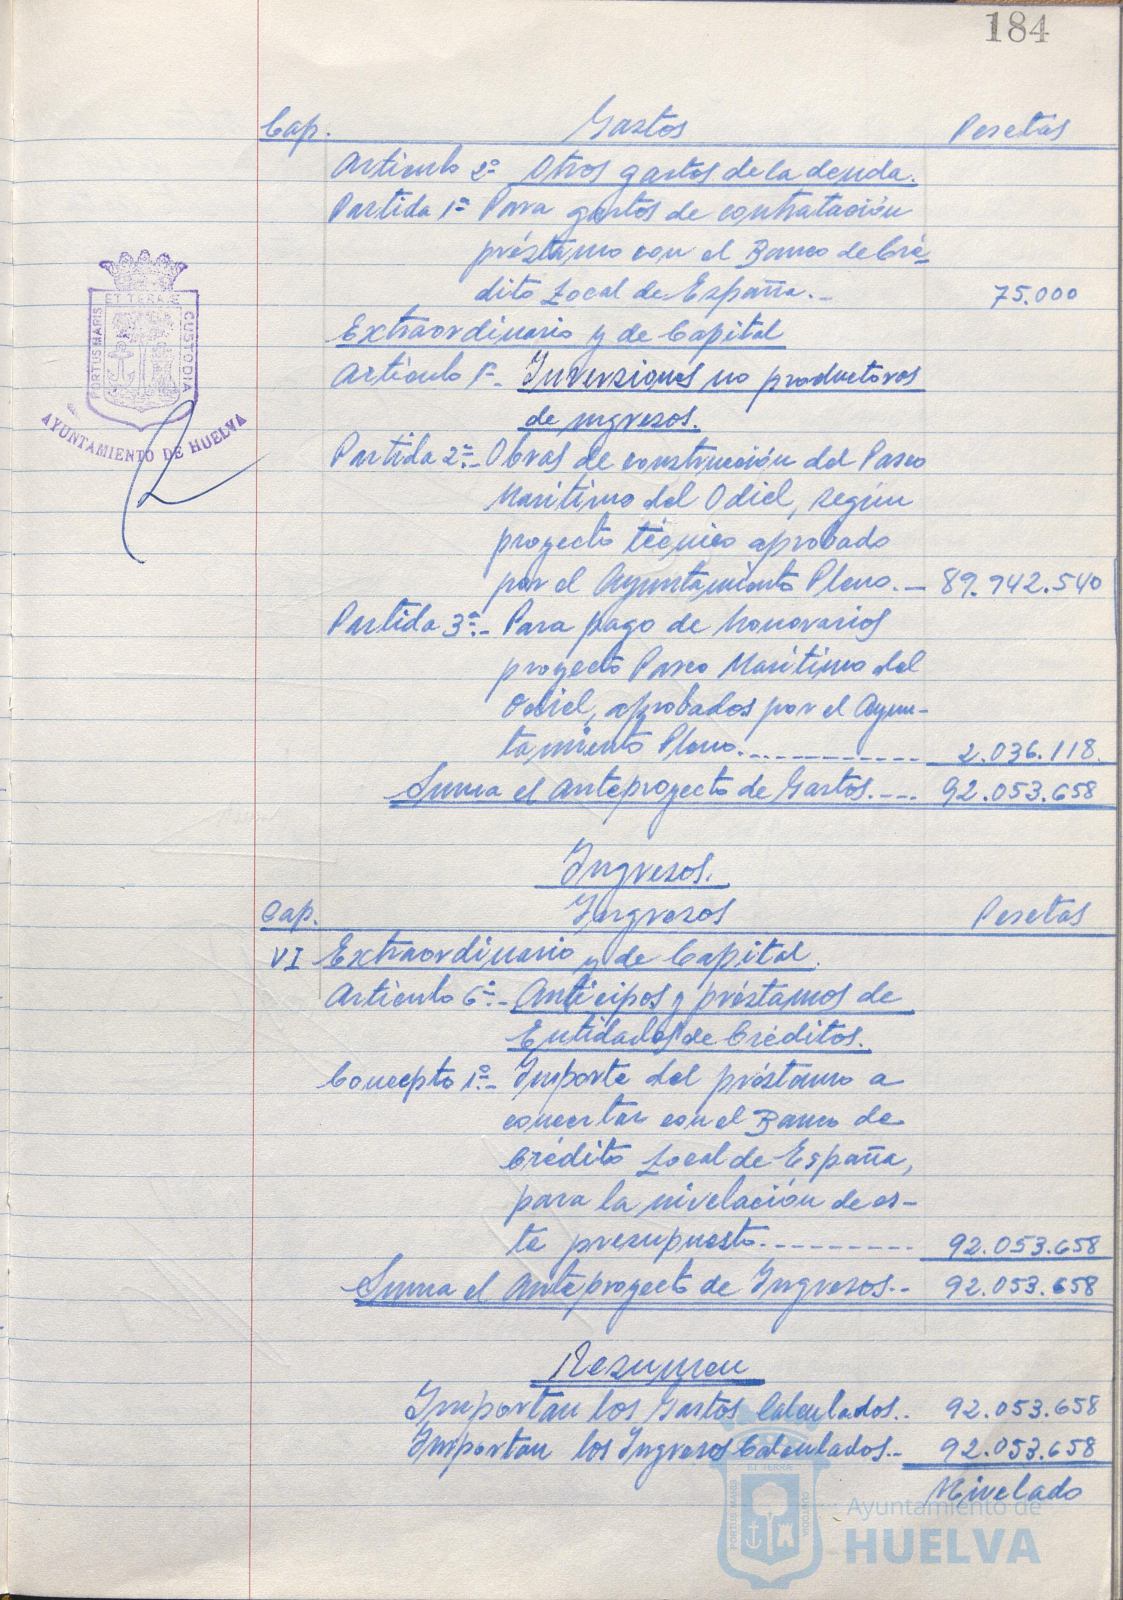 184
Cap. Gastos Pesetas
Artículo 2º Otros gastos de la deuda.
Partida 1ª Para gastos de contratación
préstamo con el Banco de Cré-
dito Local de España.- 75.000
Extraordinario y de Capital
Artículo 1º- Inversiones no productoras
de ingresos.
Partida 2ª- Obras de construcción del Paseo
Marítimo del Odiel, según
proyecto técnico aprobado
por el Ayuntamiento Pleno.- 89.942.540
Partida 3ª.- Para pago de honorarios
proyecto Paseo Marítimo del
Odiel, aprobados por el Ayun-
tamiento Pleno.------------ 2.036.118.
Suma el anteproyecto de Gastos.--- 92.053.658
Ingresos.
Cap. Ingresos Pesetas
VI Extraordinario y de Capital.
Artículo 6º.- Anticipos y préstamos de
Entidades de Créditos.
Concepto 1º.- Importe del préstamo a
concertar con el Banco de
Crédito Local de España,
para la nivelación de es-
te presupuesto.--------- 92.053.658
Suma el anteproyecto de Ingresos.-- 92.053.658
Resumen
Importan los Gastos Calculados.. 92.053.658
Importan los Ingresos Calculados.- 92.053.658
Nivelado
PORTUS MARIS ET TERRAE CUSTODIA
AYUNTAMIENTO DE HUELVA
PORTUS MARIS ET TERRAE CUSTODIA
Ayuntamiento de
HUELVA